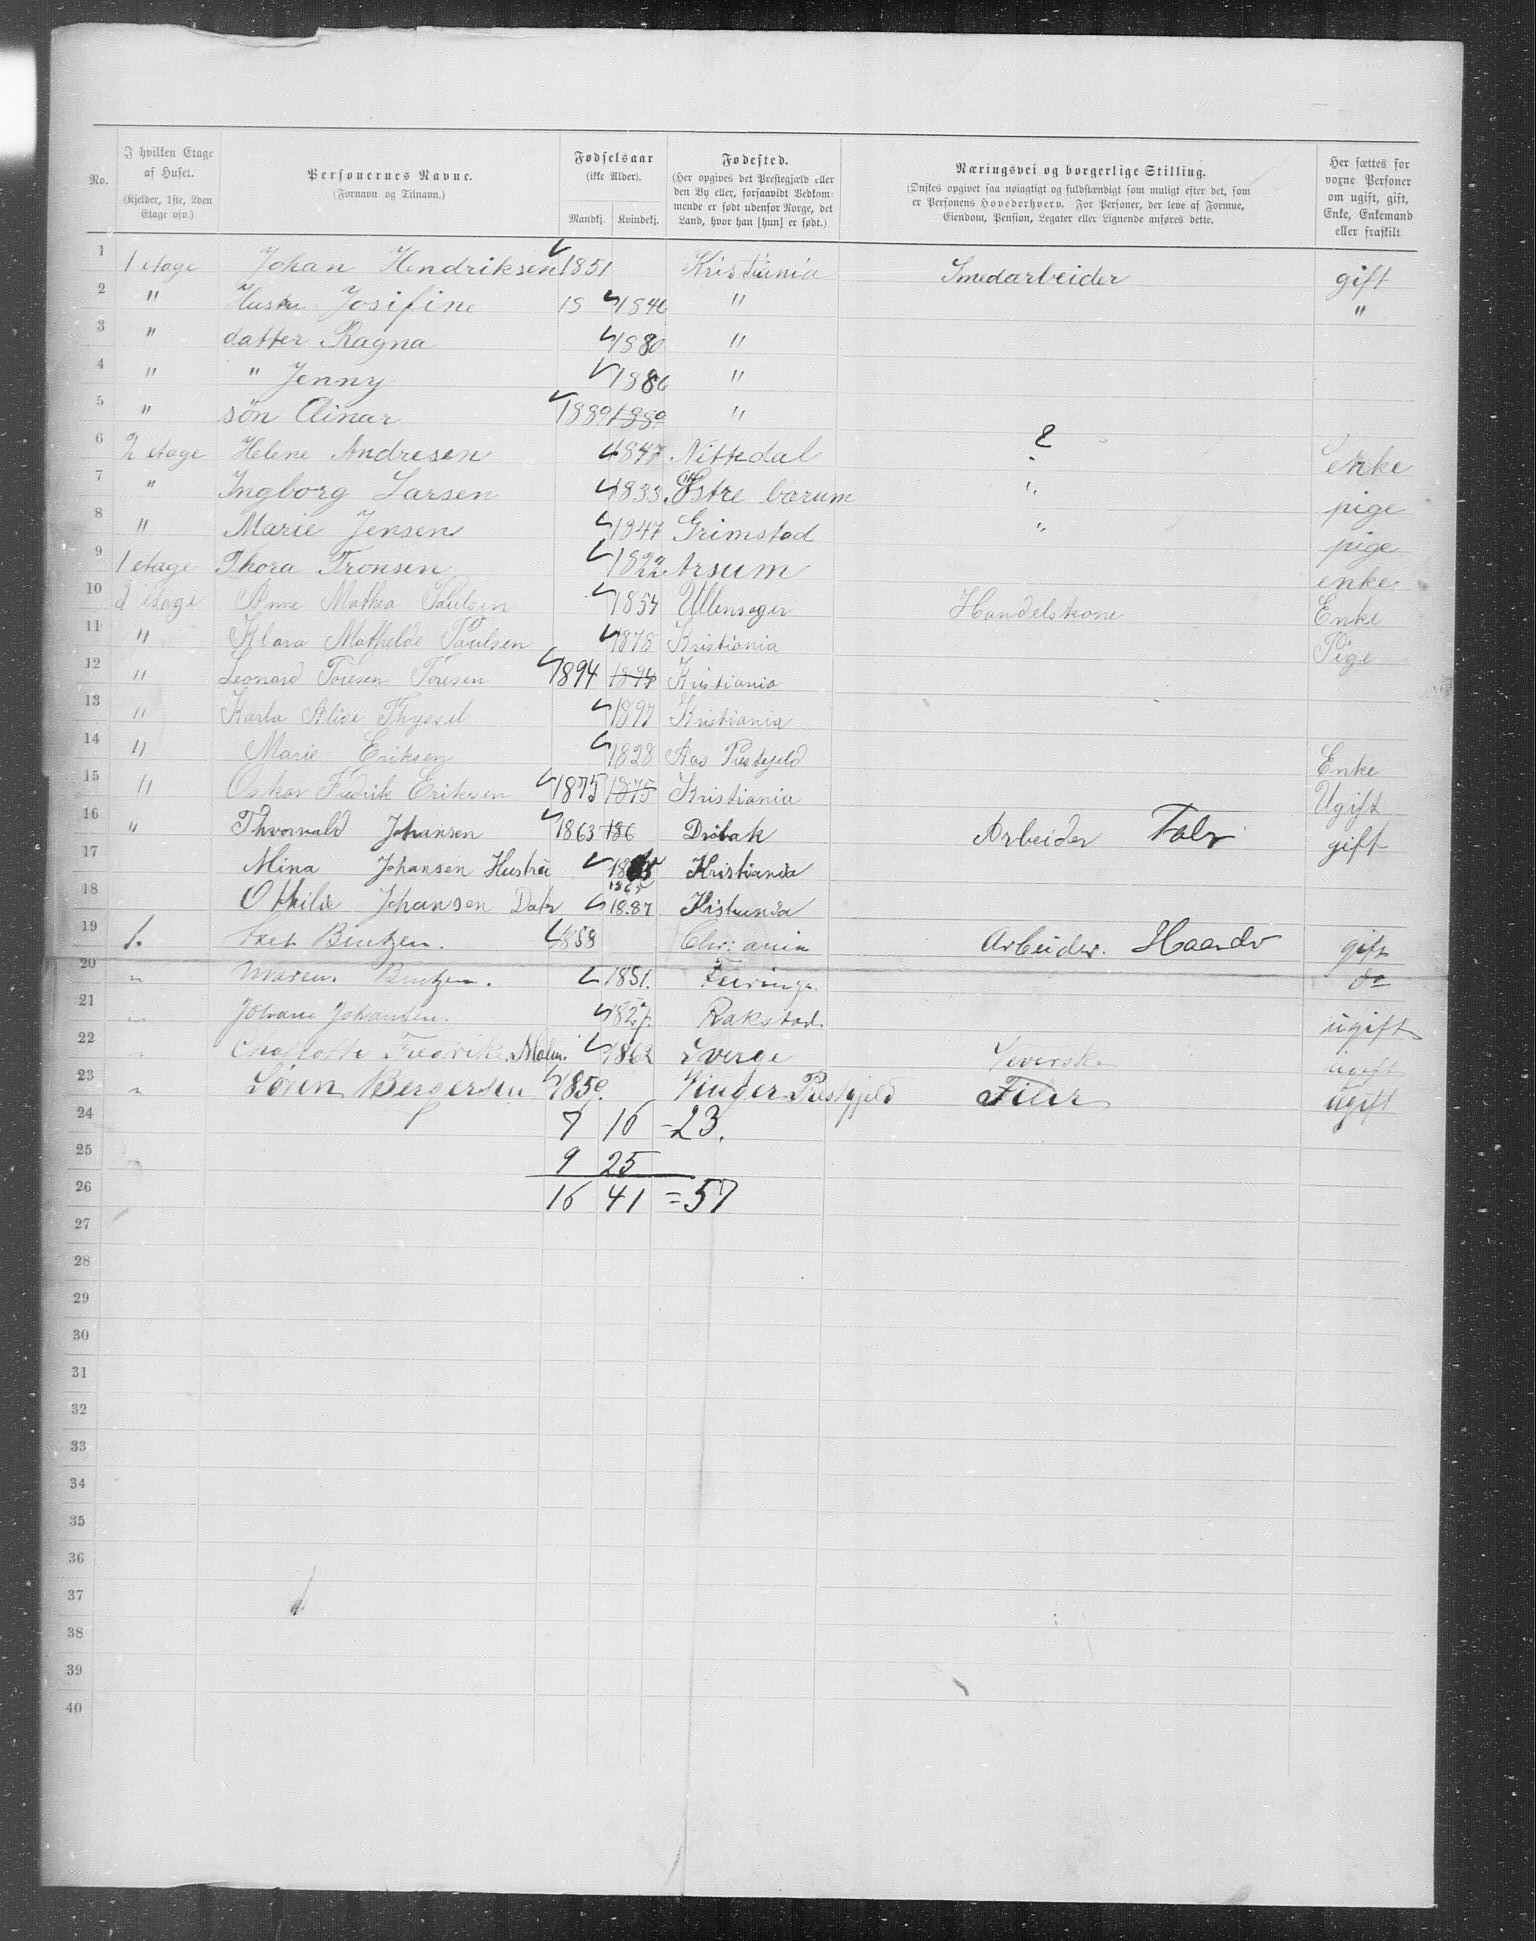 No. I hvilken Etage af Huset. (Kjelder, 1ste, 2den Etage osv.) Personernes Navne. (Fornavn og Tilnavn.) Fødselsaar (ikke Alder). Mandkj. Kvindekj. Fødested. (Her opgives det Prestegjæld eller den By eller, forsaavidt Vedkommende er født udenfor Norge, det Land, hvor han [hun] er født.) Næringsvei og borgerlige Stilling. (Ønskes opgivet saa nøiagtigt og fuldstændigt som muligt efter det, som er Personens Hovederhverv. For Personer, der leve af Formue, Eiendom, Pension, Legater eller Lignende anføres dette. Her sættes for voxne Personer om ugift, gift, Enke, Enkemand eller fraskilt.
1 1 etage Johan Hendriksen 1851 Kristiania Smedarbeider gift
2 " Hustru Josifine 18 1846 " "
3 " datter Ragna 1880 "
4 " " Jenny 1886 "
5 " søn Einar 1889 1889 "
6 2 etage Helene Andresen 1847 Nittedal ? enke
7 " Ingborg Larsen 1833 Østre bærum " pige
8 " Marie Jensen 1847 Grimstad " pige
9 1 etage Thora Tronsen 1822 enke
10 2 etage Ane Mathea Paulsen 1854 Ullensager Handelskone Enke
11 " Klara Mathilde Paulsen 1878 Kristiania Pige
12 " Leonard Toresen Toresen 1894 1894 Kristiania
13 " Karla Alise Thyssel 1897 Kristiania
14 " Marie Eriksen 1828 Aas Prestejeld Enke
15 " Oskar Fredrik Eriksen 1875 1875 Kristiania Ugift
16 " Thorvald Johansen 1863 186 Drøbak Arbeider Fabr gift
17 Mina Johansen Hustru 1865 Kristiania
1865
18 Othilie Johansen Datr 1887 Kristiania
19 1. Bentzen. 1858 Chr:ania Arbeider. Haandv gift
20 " Maren Bentzen. 1851. Feiringe. do
21 " Johane Johansen. 1827. Rakstad. ugift
22 " Charlotte Fredrike Malm. 1862 Sverge Veverske ugift
23 " Søren Bergersen 1850. Vinger Prestgjeld Filer ugift
24 7 16 -23.
25 9 25
26 16 41 =57
27
28
29
30
31
32
33
34
35
36
37
38
39
40